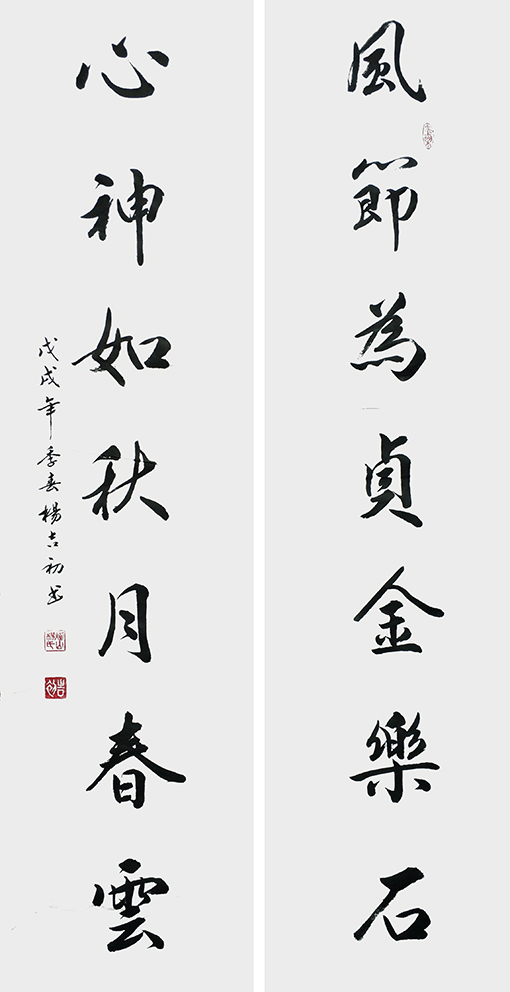 風節為貞金樂石
心神如秋月春雲
戊戌年季春楊吉初书